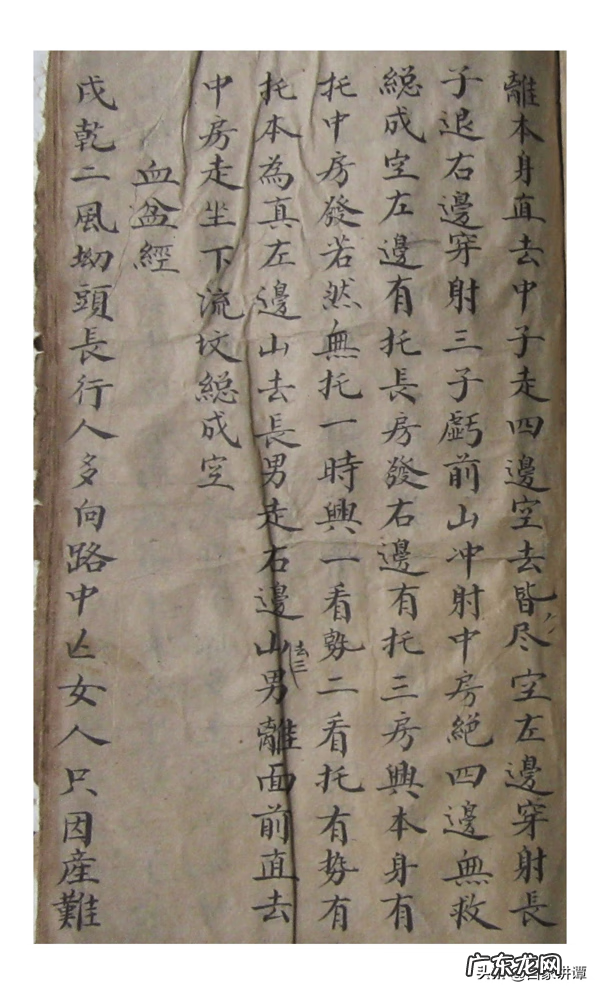 離本身直去中子走四邊空去皆尽空左邊穿射長
子退右邊穿射三子虧前山冲射中房絶四邊無救
総成空左邊有托長房發右邊有托三房興本身有
托中房發若然無托一時興一看勢二看托有势有
托本為真左邊山去長男走右邊山去三男離面前直去
中房走坐下流坟総成空
血盆經
戌乾二風坳頭長行人多向路中亡女人只因産難
广东龙网
头条 @百家讲谭